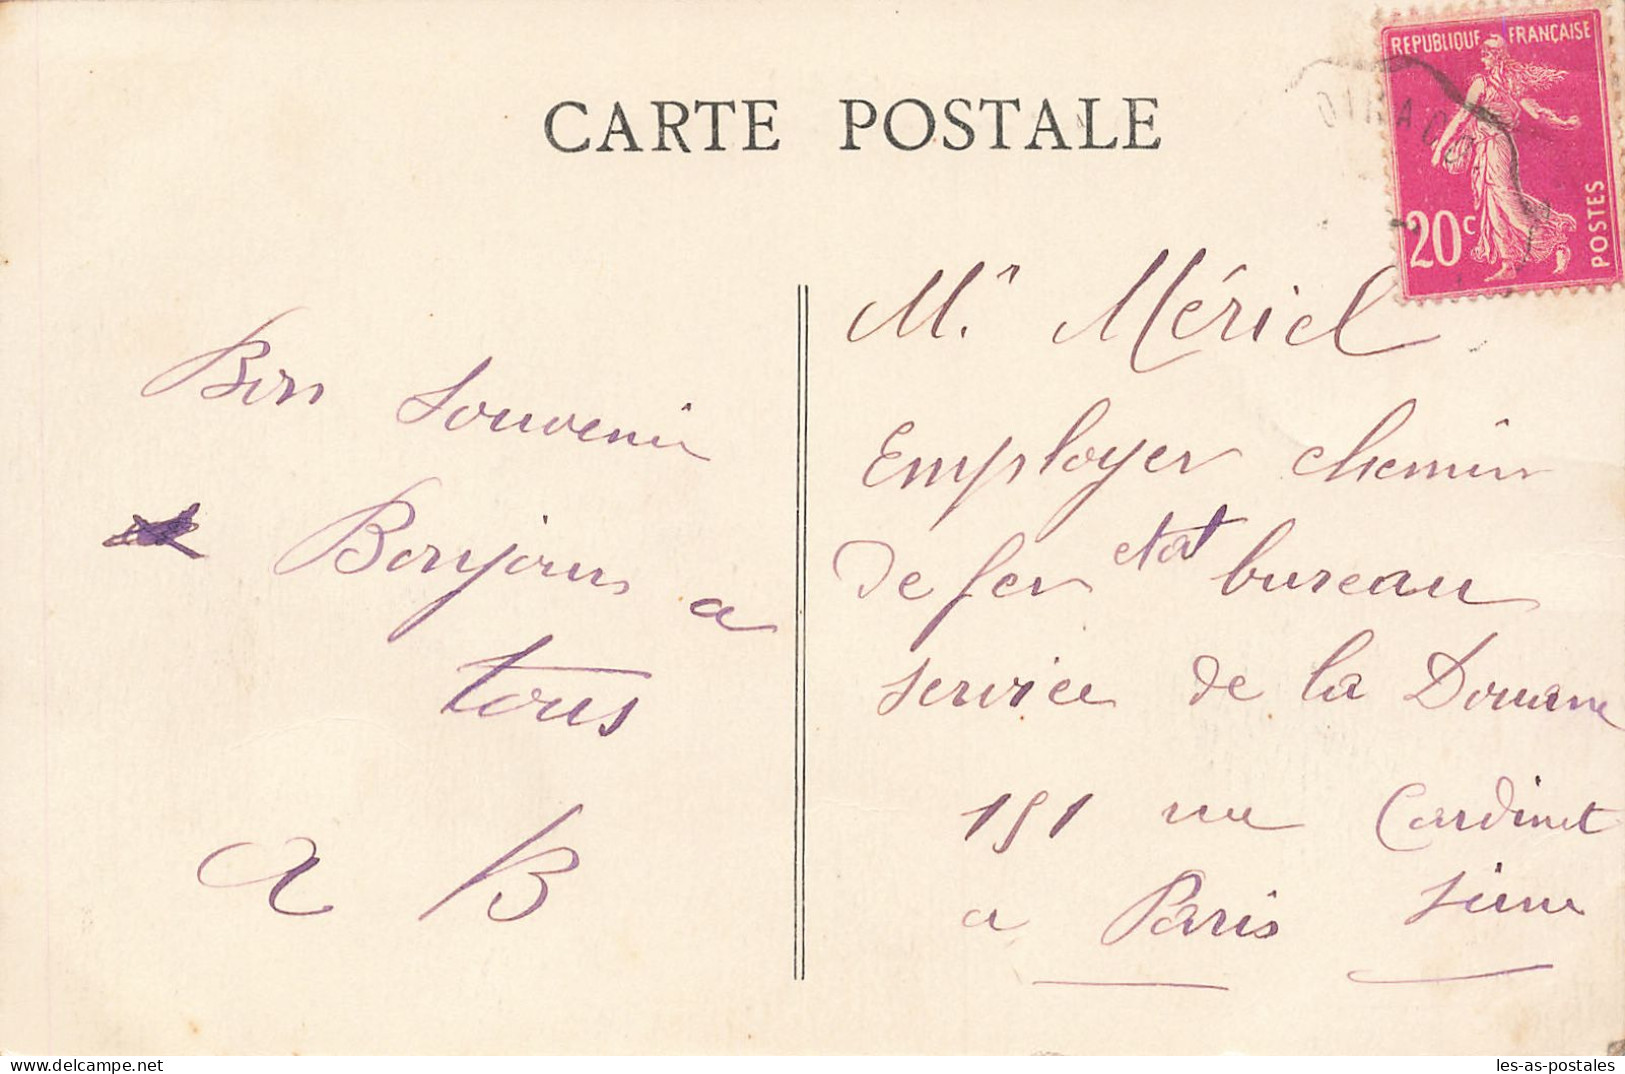 CARTE POSTALE
REPUBLIQUE FRANÇAISE
20c
POSTES
Bon Souvenir
Bonjour a
tous
A B
Mr Mériel
Employer chemin
de fer etat bureau
service de la Douane
151 rue Cardinet
a Paris Seine
delcampe.net
les-as-postales